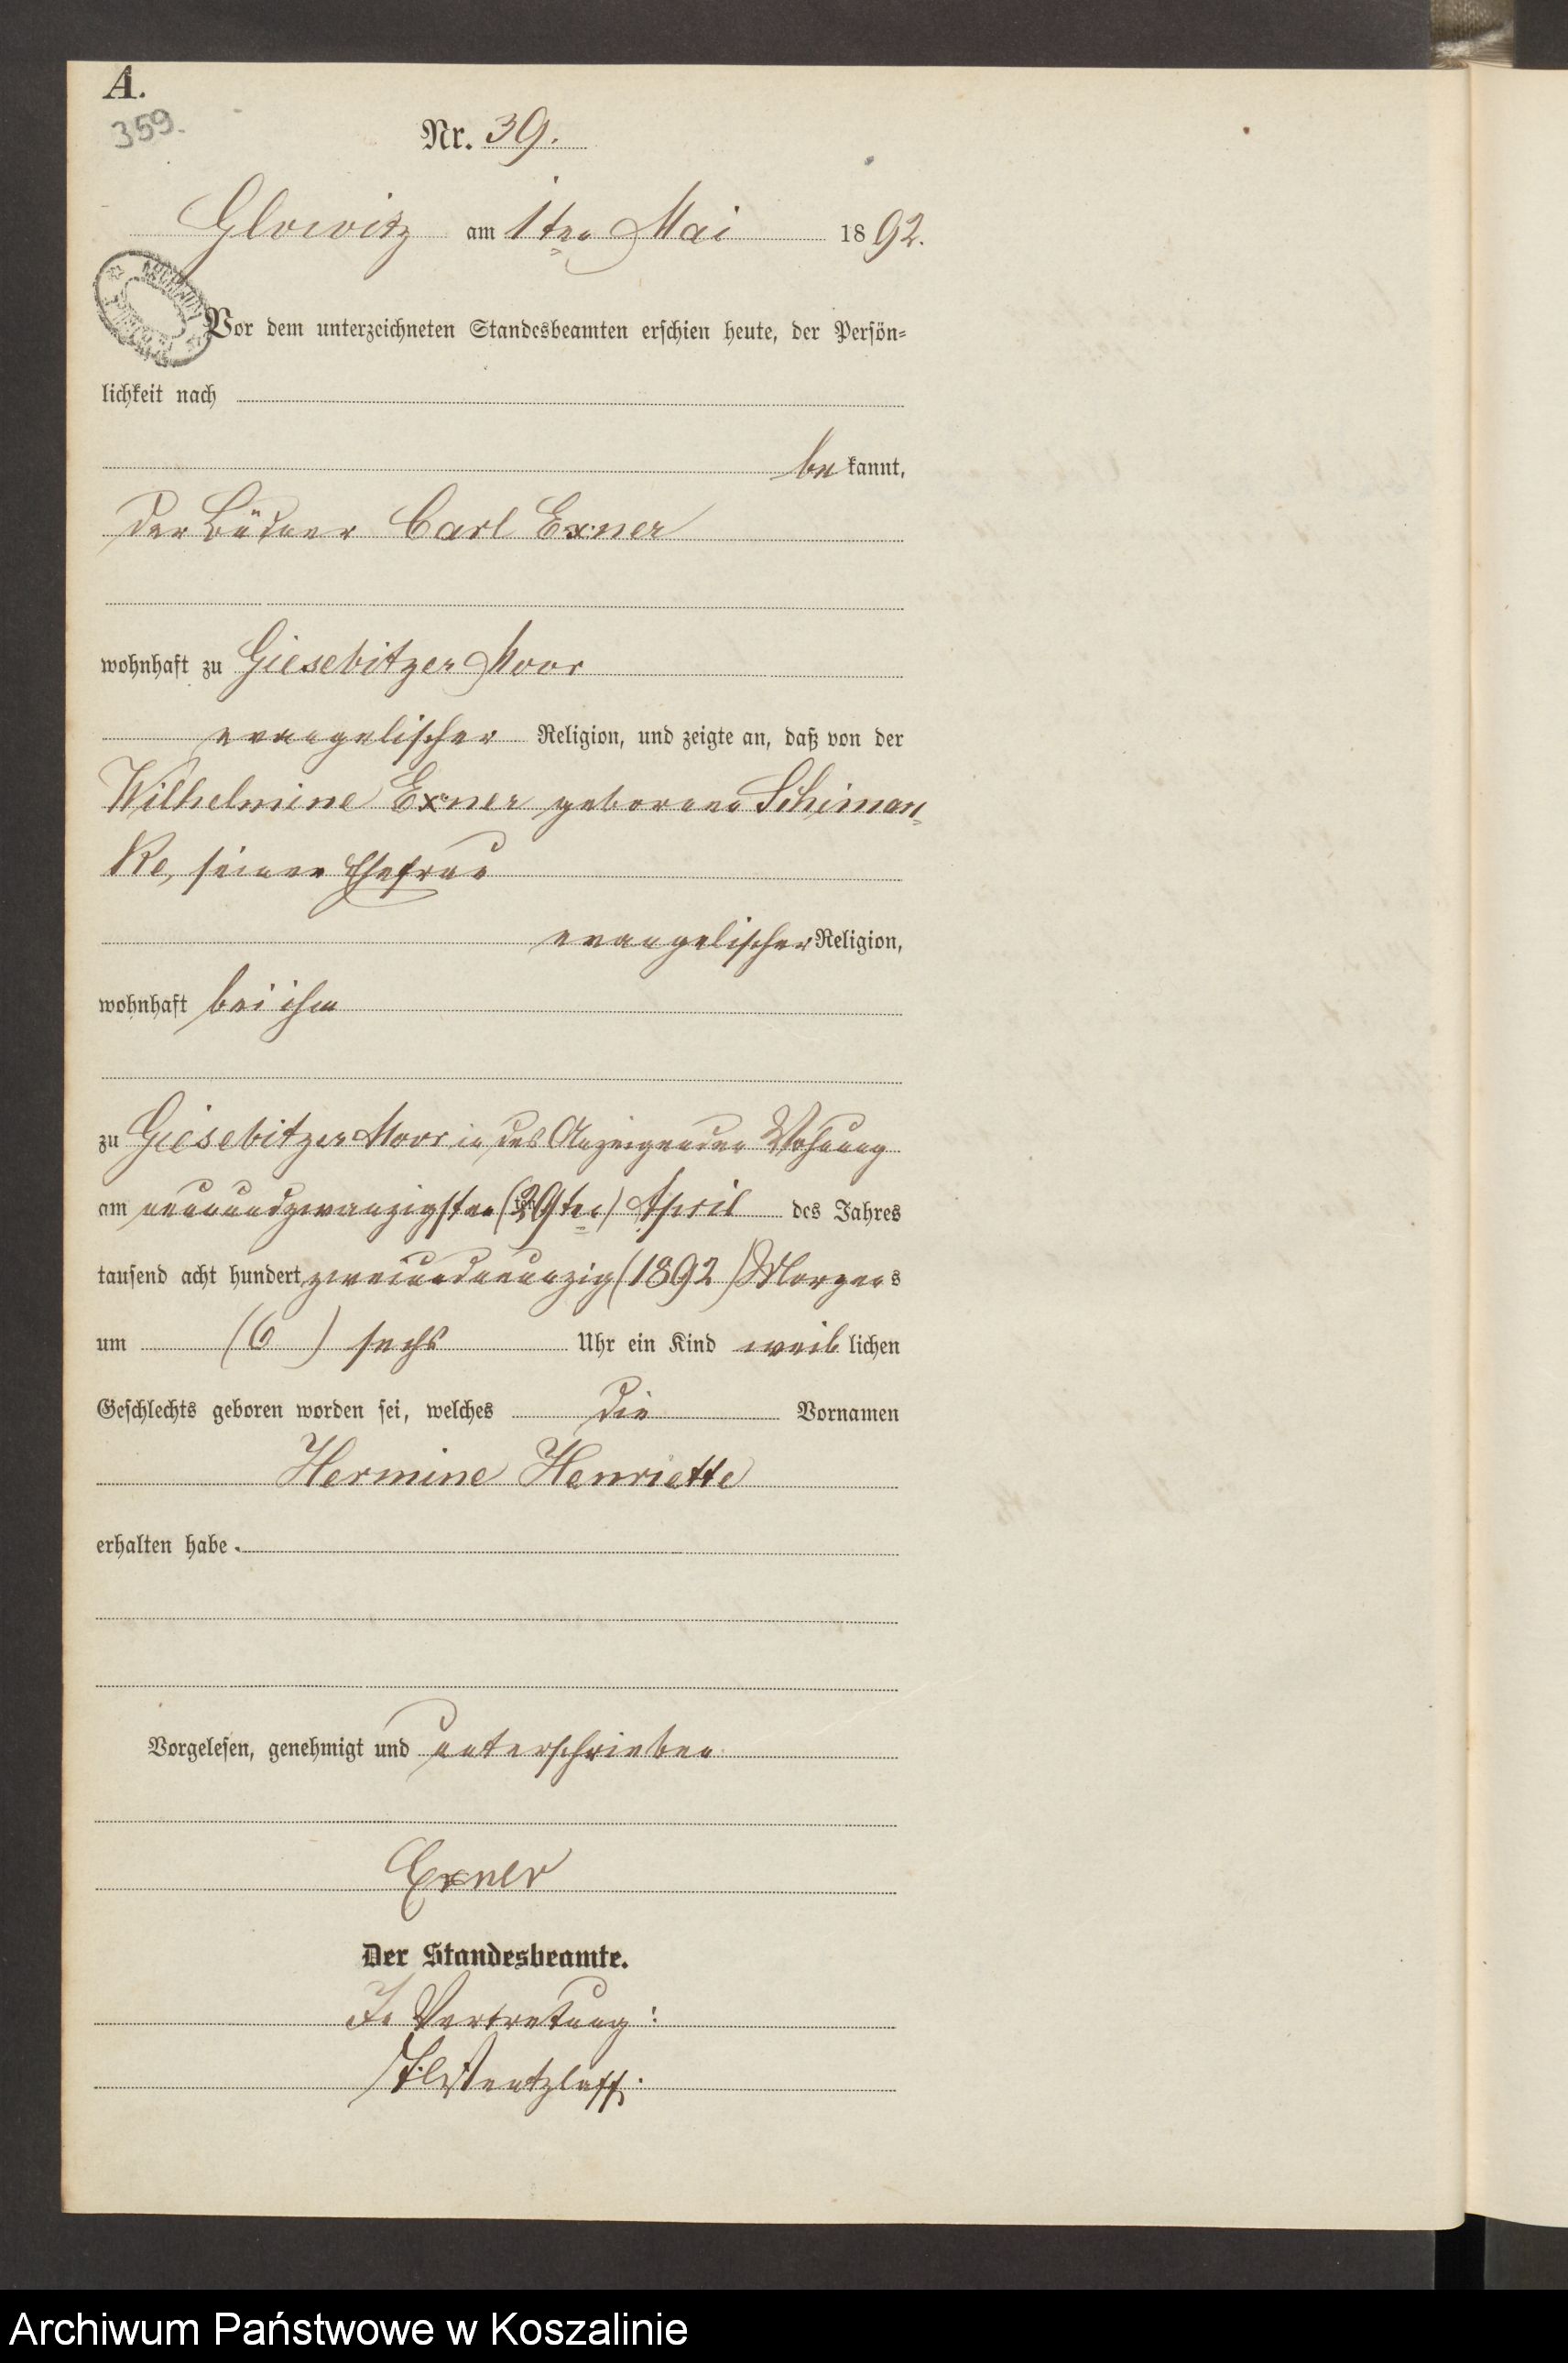 A.
359.
Nr. 39.
Glowitz am 1ten Mai 1892.
Vor dem unterzeichneten Standesbeamten erschien heute, der Persön=
lichkeit nach
bekannt,
der Büdner Carl Exner
wohnhaft zu Giesebitzer Moor
evangelischer Religion, und zeigte an, daß von der
Wilhelmine Exner geborene Schiman=
ke, seiner Ehefrau
evangelischer Religion,
wohnhaft bei ihm
zu Giesebitzer Moor in des Anzeigenden Wohnung
am neunundzwanzigsten (29ten) April des Jahres
tausend acht hundert zweiundneunzig (1892) Morgens
um (6) sechs Uhr ein Kind weiblichen
Geschlechts geboren worden sei, welches die Vornamen
Hermine Henriette
erhalten habe.
Vorgelesen, genehmigt und unterschrieben
Exner
Der Standesbeamte.
In Vertretung:
Archiwum Państwowe w Koszalinie